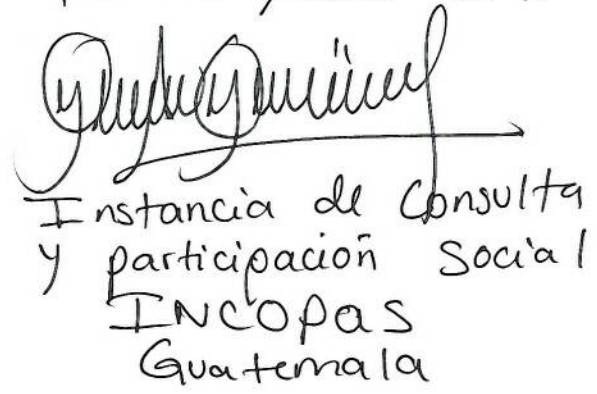 Instancia de Consulta
y participación Social
INCOPAS
Guatemala